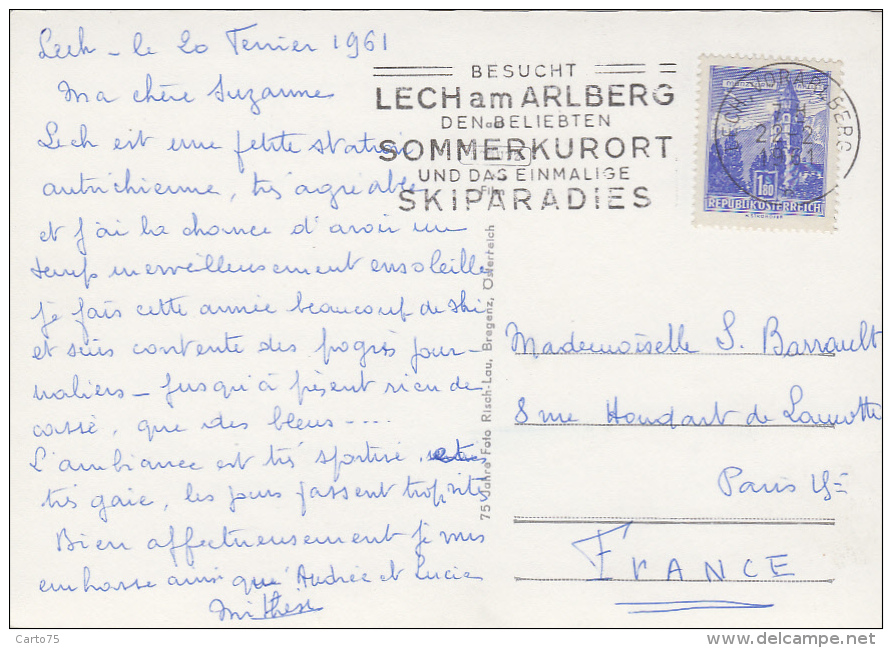 Lech - le 20 Fevrier 1961
Ma chère Suzanne
Lech est une petite station
autrichienne, très agréable
et j'ai la chance d'avoir un
temps merveilleusement ensoleillé
je fais cette année beaucoup de ski
et suis contente des pogrès jour-
naliers - Jusqu'à présent rien de
cassé, que des bleus ....
L'ambiance est très sportive
très gaie, les jours passent trop vite
Bien affectueusement je vous
embrasse ainsi que Andrée et Lucie
BESUCHT
LECH am ARLBERG
DEN BELIEBTEN
SOMMERKURORT
UND DAS EINMALIGE
SKIPARADIES
1.80
REPUBLIK ÖSTERREICH
75 Jahre Foto Risch-Lau, Bregenz, Österreich
Mademoiselle S. Barrault
8 rue Houdart de Lamotte
Paris 15e
FRANCE
Carto75
www.delcampe.net